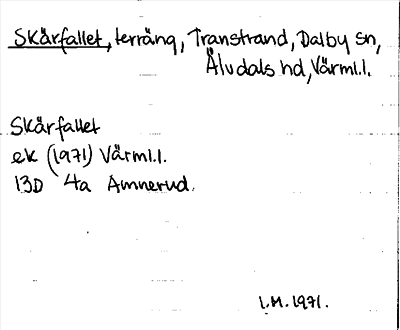 Skårfallet, terräng, Transtrand, Dalby sn,
Älvdals hd, Värml.l.
Skårfallet
ek (1971) Värml.l.
13D 4a Amnerud.
I.M. 1971.